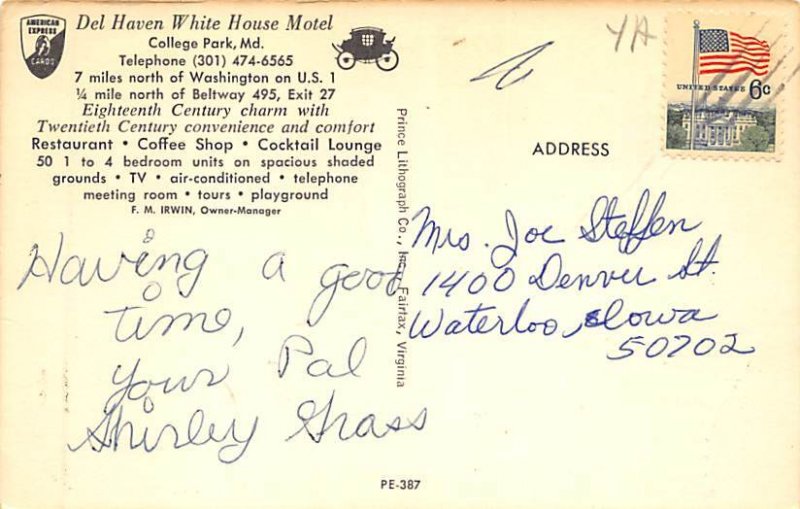 AMERICAN
EXPRESS
CARDS
Del Haven White House Motel
College Park, Md.
Telephone (301) 474-6565
7 miles north of Washington on U.S. 1
¼ mile north of Beltway 495, Exit 27
Eighteenth Century charm with
Twentieth Century convenience and comfort
Restaurant • Coffee Shop • Cocktail Lounge
50 1 to 4 bedroom units on spacious shaded
grounds • TV • air-conditioned • telephone
meeting room • tours • playground
F. M. IRWIN, Owner-Manager
Having a good
time,
your Pal
Shirley Grass
Prince Lithograph Co., Inc., Fairfax, Virginia
UNITED STATES 6c
ADDRESS
Mrs. Joe Steffen
1400 Denver St.
Waterloo, Iowa
50702
PE-387